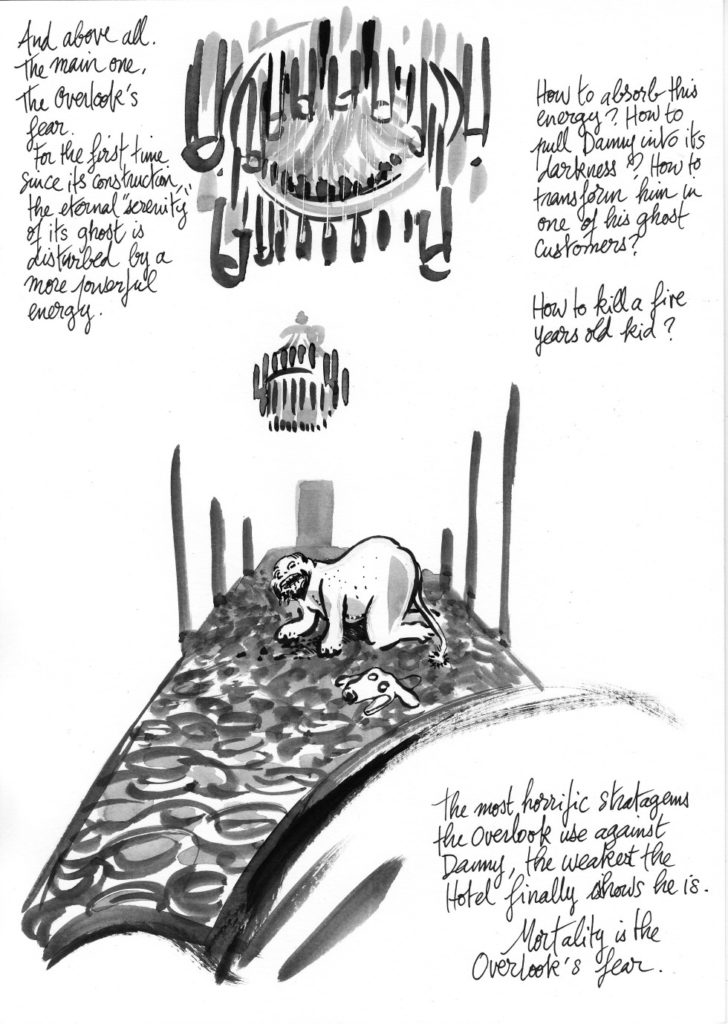 And above all.
The main one,
The Overlook's
fear.
For the first time
since its construction,
the eternal "serenity"
of its ghost is
disturbed by a
more powerful
energy.
How to absorb this
energy? How to
pull Danny into its
darkness? How to
transform him in
one of his ghost
customers?
How to kill a five
years old kid?
The most horrific stratagems
the Overlook use against
Danny, the weakest the
Hotel finally shows he is.
Mortality is the
Overlook's fear.